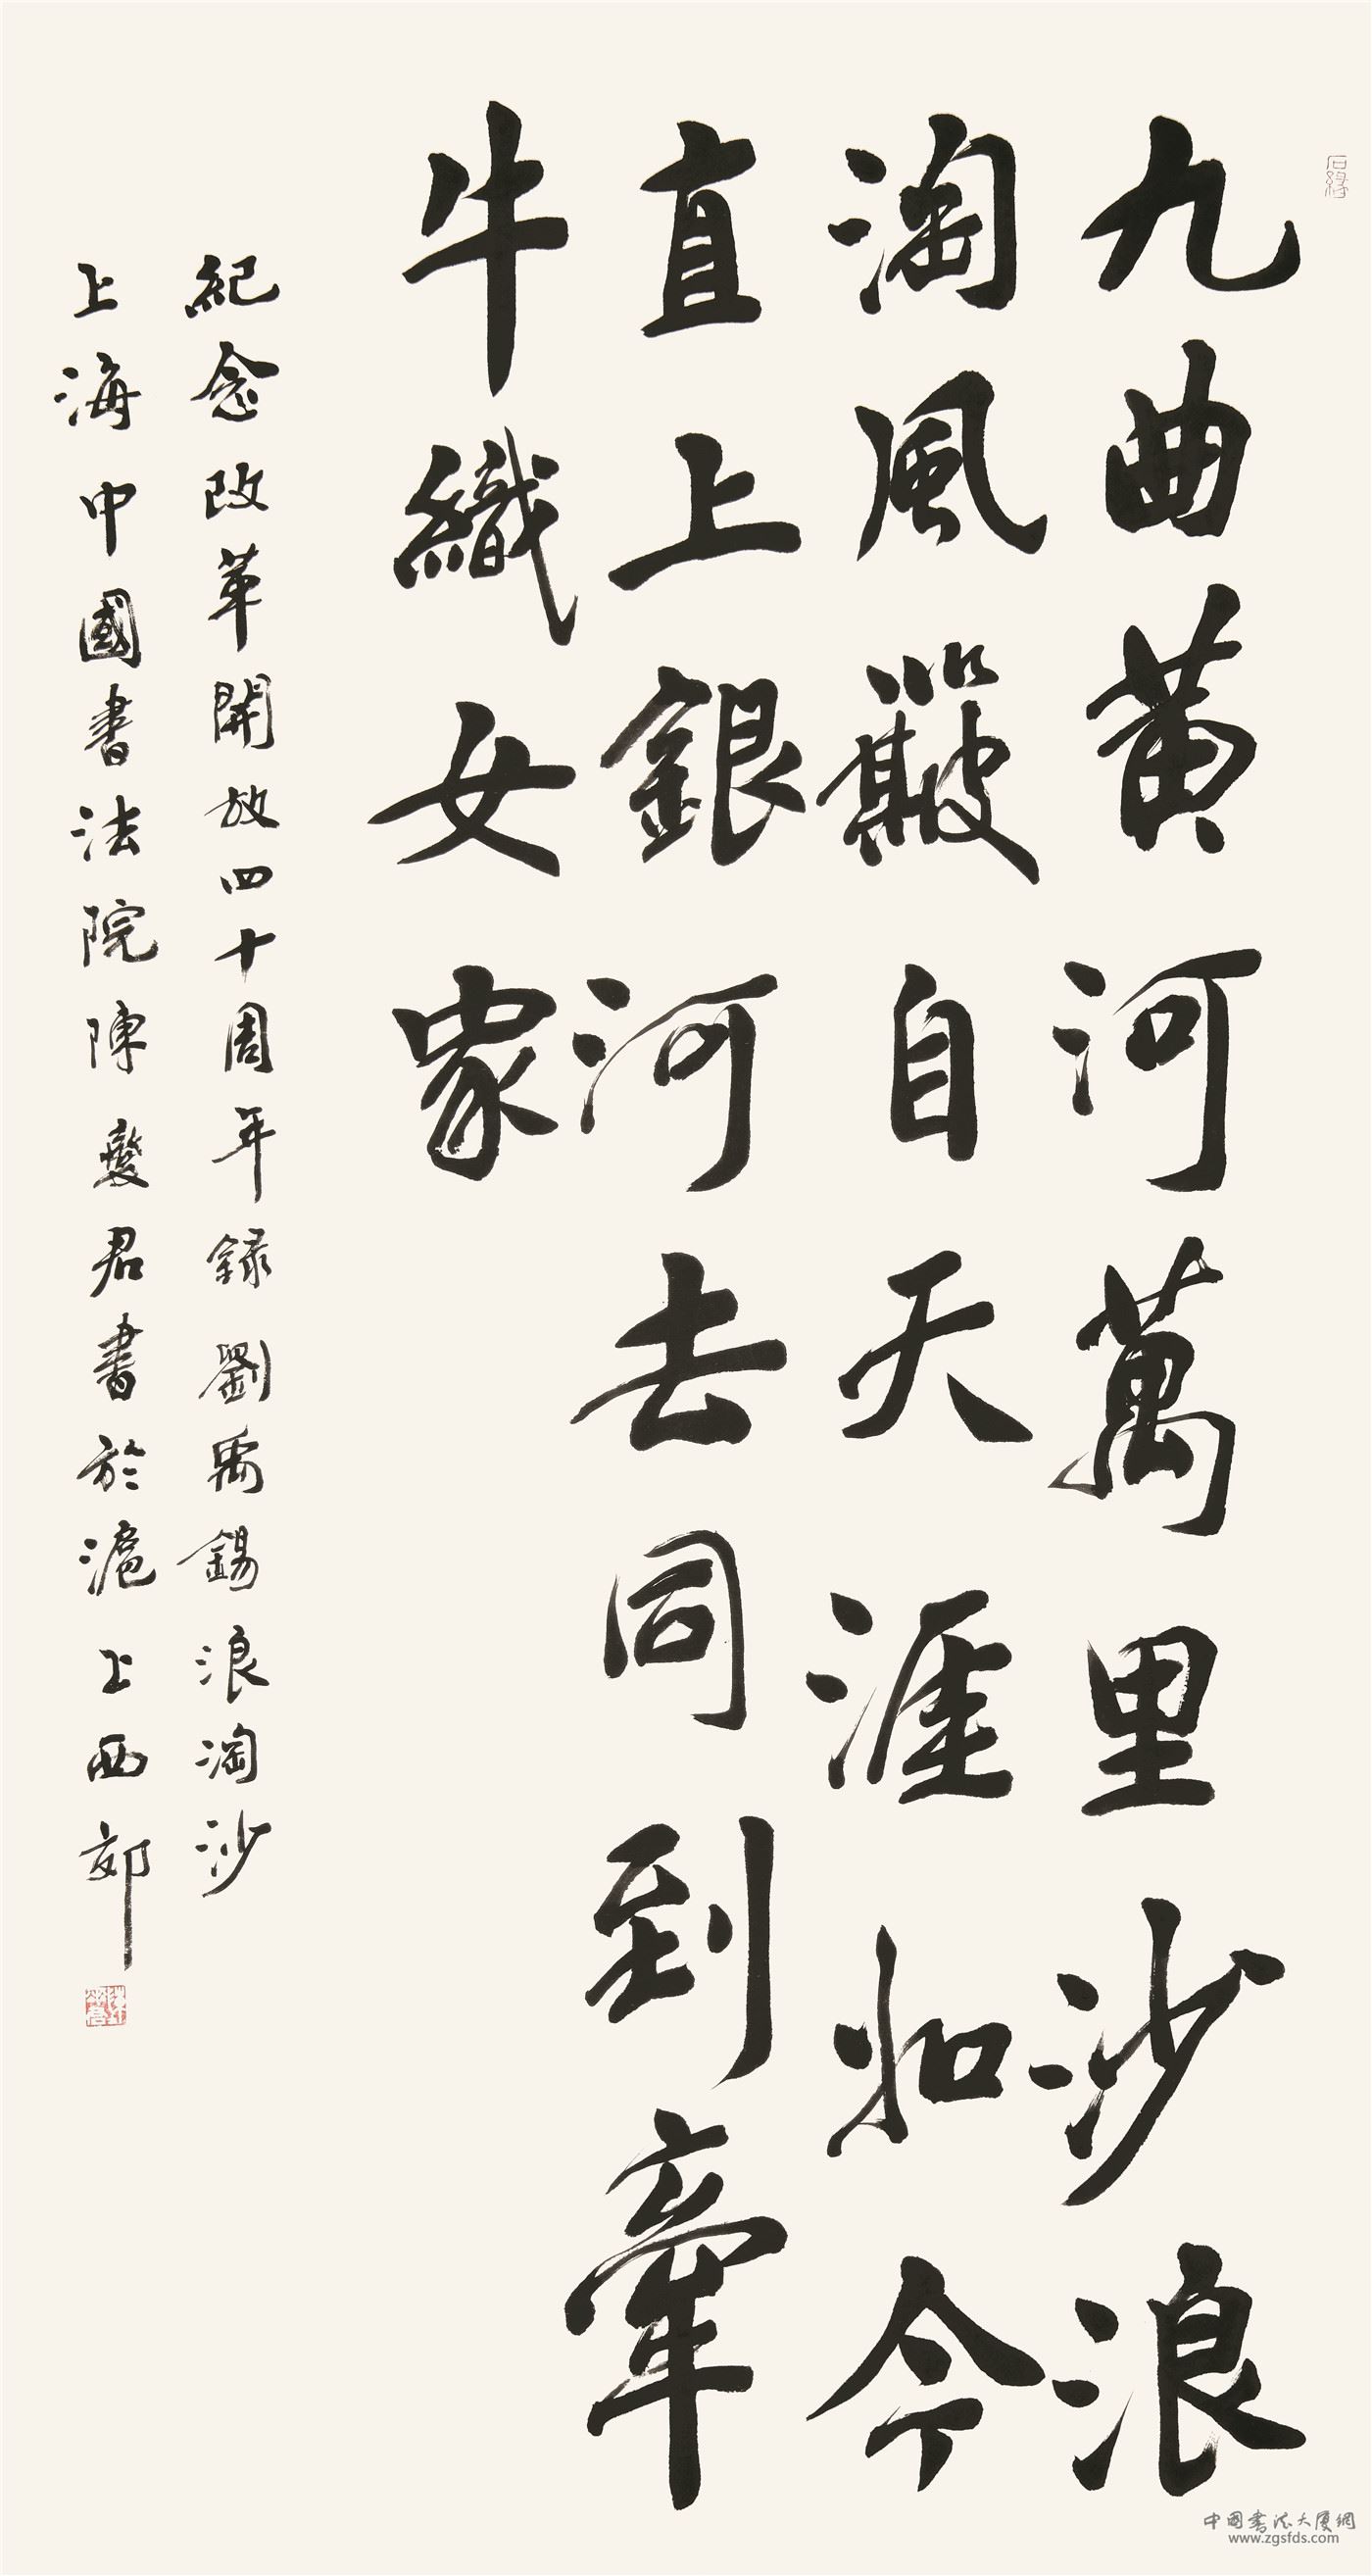 石緣
九曲黄河萬里沙浪
淘風簸自天涯如今
直上銀河去同到牽
牛織女家
紀念改革開放四十周年録劉禹錫浪淘沙
上海中國書法院陳燮君書於滬上西郊
中國書法大厦網
www.zgsfds.com